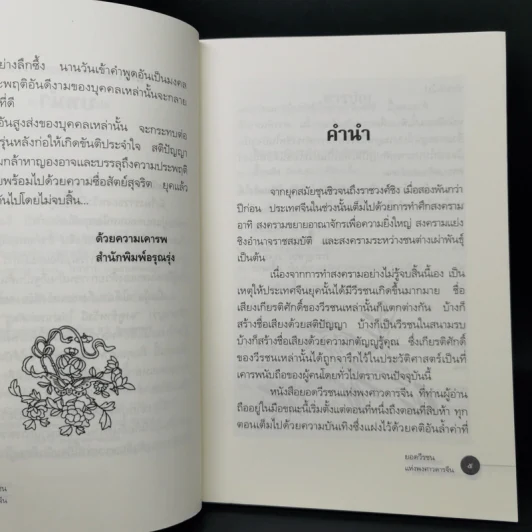 ย่างลึกซึ้ง นานวันเข้าคำพูดอันเป็นมงคล
ะพฤติอันดีงามของบุคคลเหล่านั้นจะกลาย
ที่ดี
อันสูงส่งของบุคคลเหล่านั้น จะกระทบต่อ
รุ่นหลังก่อให้เกิดขันติประจำใจ สติปัญญา
มกล้าหาญองอาจและบรรลุถึงความประพฤติ
บพร้อมไปด้วยความซื่อสัตย์สุจริต ยุคแล้ว
ันไปโดยไม่จบสิ้น...
ด้วยความเคารพ
สำนักพิมพ์อรุณรุ่ง
คำนำ
จากยุคสมัยชุนชิวจนถึงราชวงศ์ชิง เมื่อสองพันกว่า
ปีก่อน ประเทศจีนในช่วงนั้นเต็มไปด้วยการทำศึกสงคราม
อาทิ สงครามขยายอาณาจักรเพื่อความยิ่งใหญ่ สงครามแย่ง
ชิงอำนาจราชสมบัติ และสงครามระหว่างชนต่างเผ่าพันธุ์
เป็นต้น
เนื่องจากการทำสงครามอย่างไม่รู้จบสิ้นนี้เอง เป็น
เหตุให้ประเทศจีนยุคนั้นได้มีวีรชนเกิดขึ้นมากมาย ชื่อ
เสียงเกียรติศักดิ์ของวีรชนเหล่านั้นก็แตกต่างกัน บ้างก็
สร้างชื่อเสียงด้วยสติปัญญา บ้างก็เป็นวีรชนในสนามรบ
บ้างก็สร้างชื่อเสียงด้วยความกตัญญูรู้คุณ ซึ่งเกียรติศักดิ์
ของวีรชนเหล่านั้นได้ถูกจารึกไว้ในประวัติศาสตร์เป็นที่
เคารพนับถือของผู้คนโดยทั่วไปตราบจนปัจจุบันนี้
หนังสือยอดวีรชนแห่งพงศาวดารจีน ที่ท่านผู้อ่าน
ถืออยู่ในมือขณะนี้เริ่มตั้งแต่ตอนที่หนึ่งถึงตอนที่สิบห้า ทุก
ตอนเต็มไปด้วยความบันเทิงซึ่งแฝงไว้ด้วยคติอันล้ำค่าที่
ยอดวีรชน
แห่งพงศาวดารจีน
๕
ชน
จีน